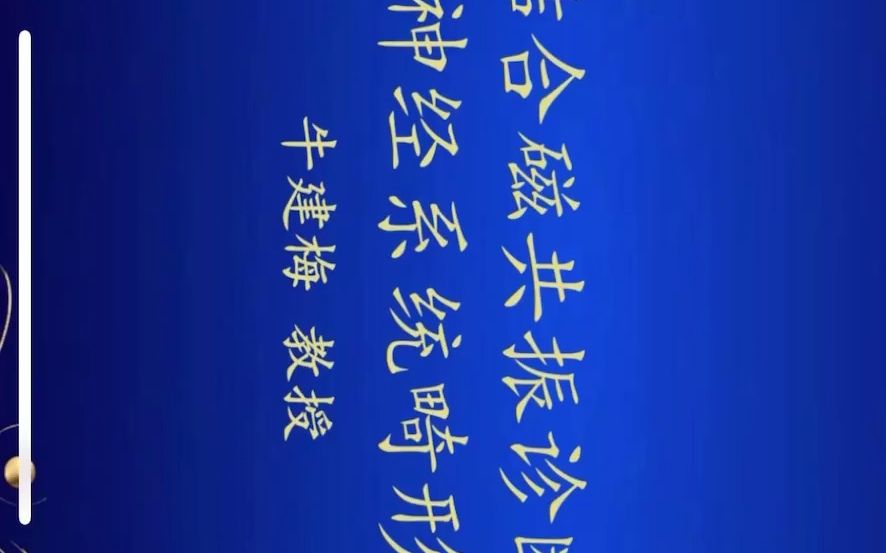 合磁共振诊
神经系统畸形
牛建梅 教授